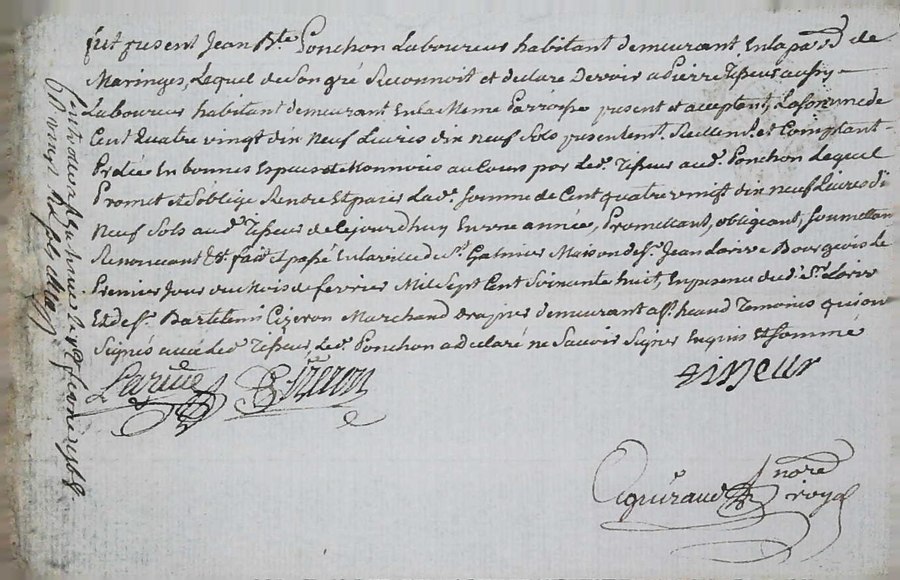 fut present Jean Bte Ponchon Laboureur habitant demeurant en la parse de
Maringes, Lequel de son gré Reconnoit et declare Devoir a Pierre aussy
Laboureur habitant demeurant en la Meme Parroisse present et acceptent, La somme de
Cent Quatre vingt dix Neuf Livres dix neuf Sols presentemt. Reellemt. et Comptant
Pretée En bonnes Especes et Monnoies au Cours par Led. aud. Ponchon Lequel
Promet et soblige Rendre Et paier Lad. Somme de Cent quatre vingt dix neuf Livres di
Neuf Sols aud. de Cejourdhuy En une année, Promettant, obligeant, soumettan
Renonceant &c fait et passé En la ville de St. Galmier Maison de Sr. Jean Larive Bourgeois Le
Premier Jour du Mois de fevrier Mil Sept Cent Soixante huit, En presence dudi Sr. Larive
Et de Sr. Bartelemi Cizeron Marchand demeurant temoins qui on
Signés avec Led. Led. Ponchon a declaré ne Savoir Signer Enquis Et sommé
Larive Cizeron
nore
royal